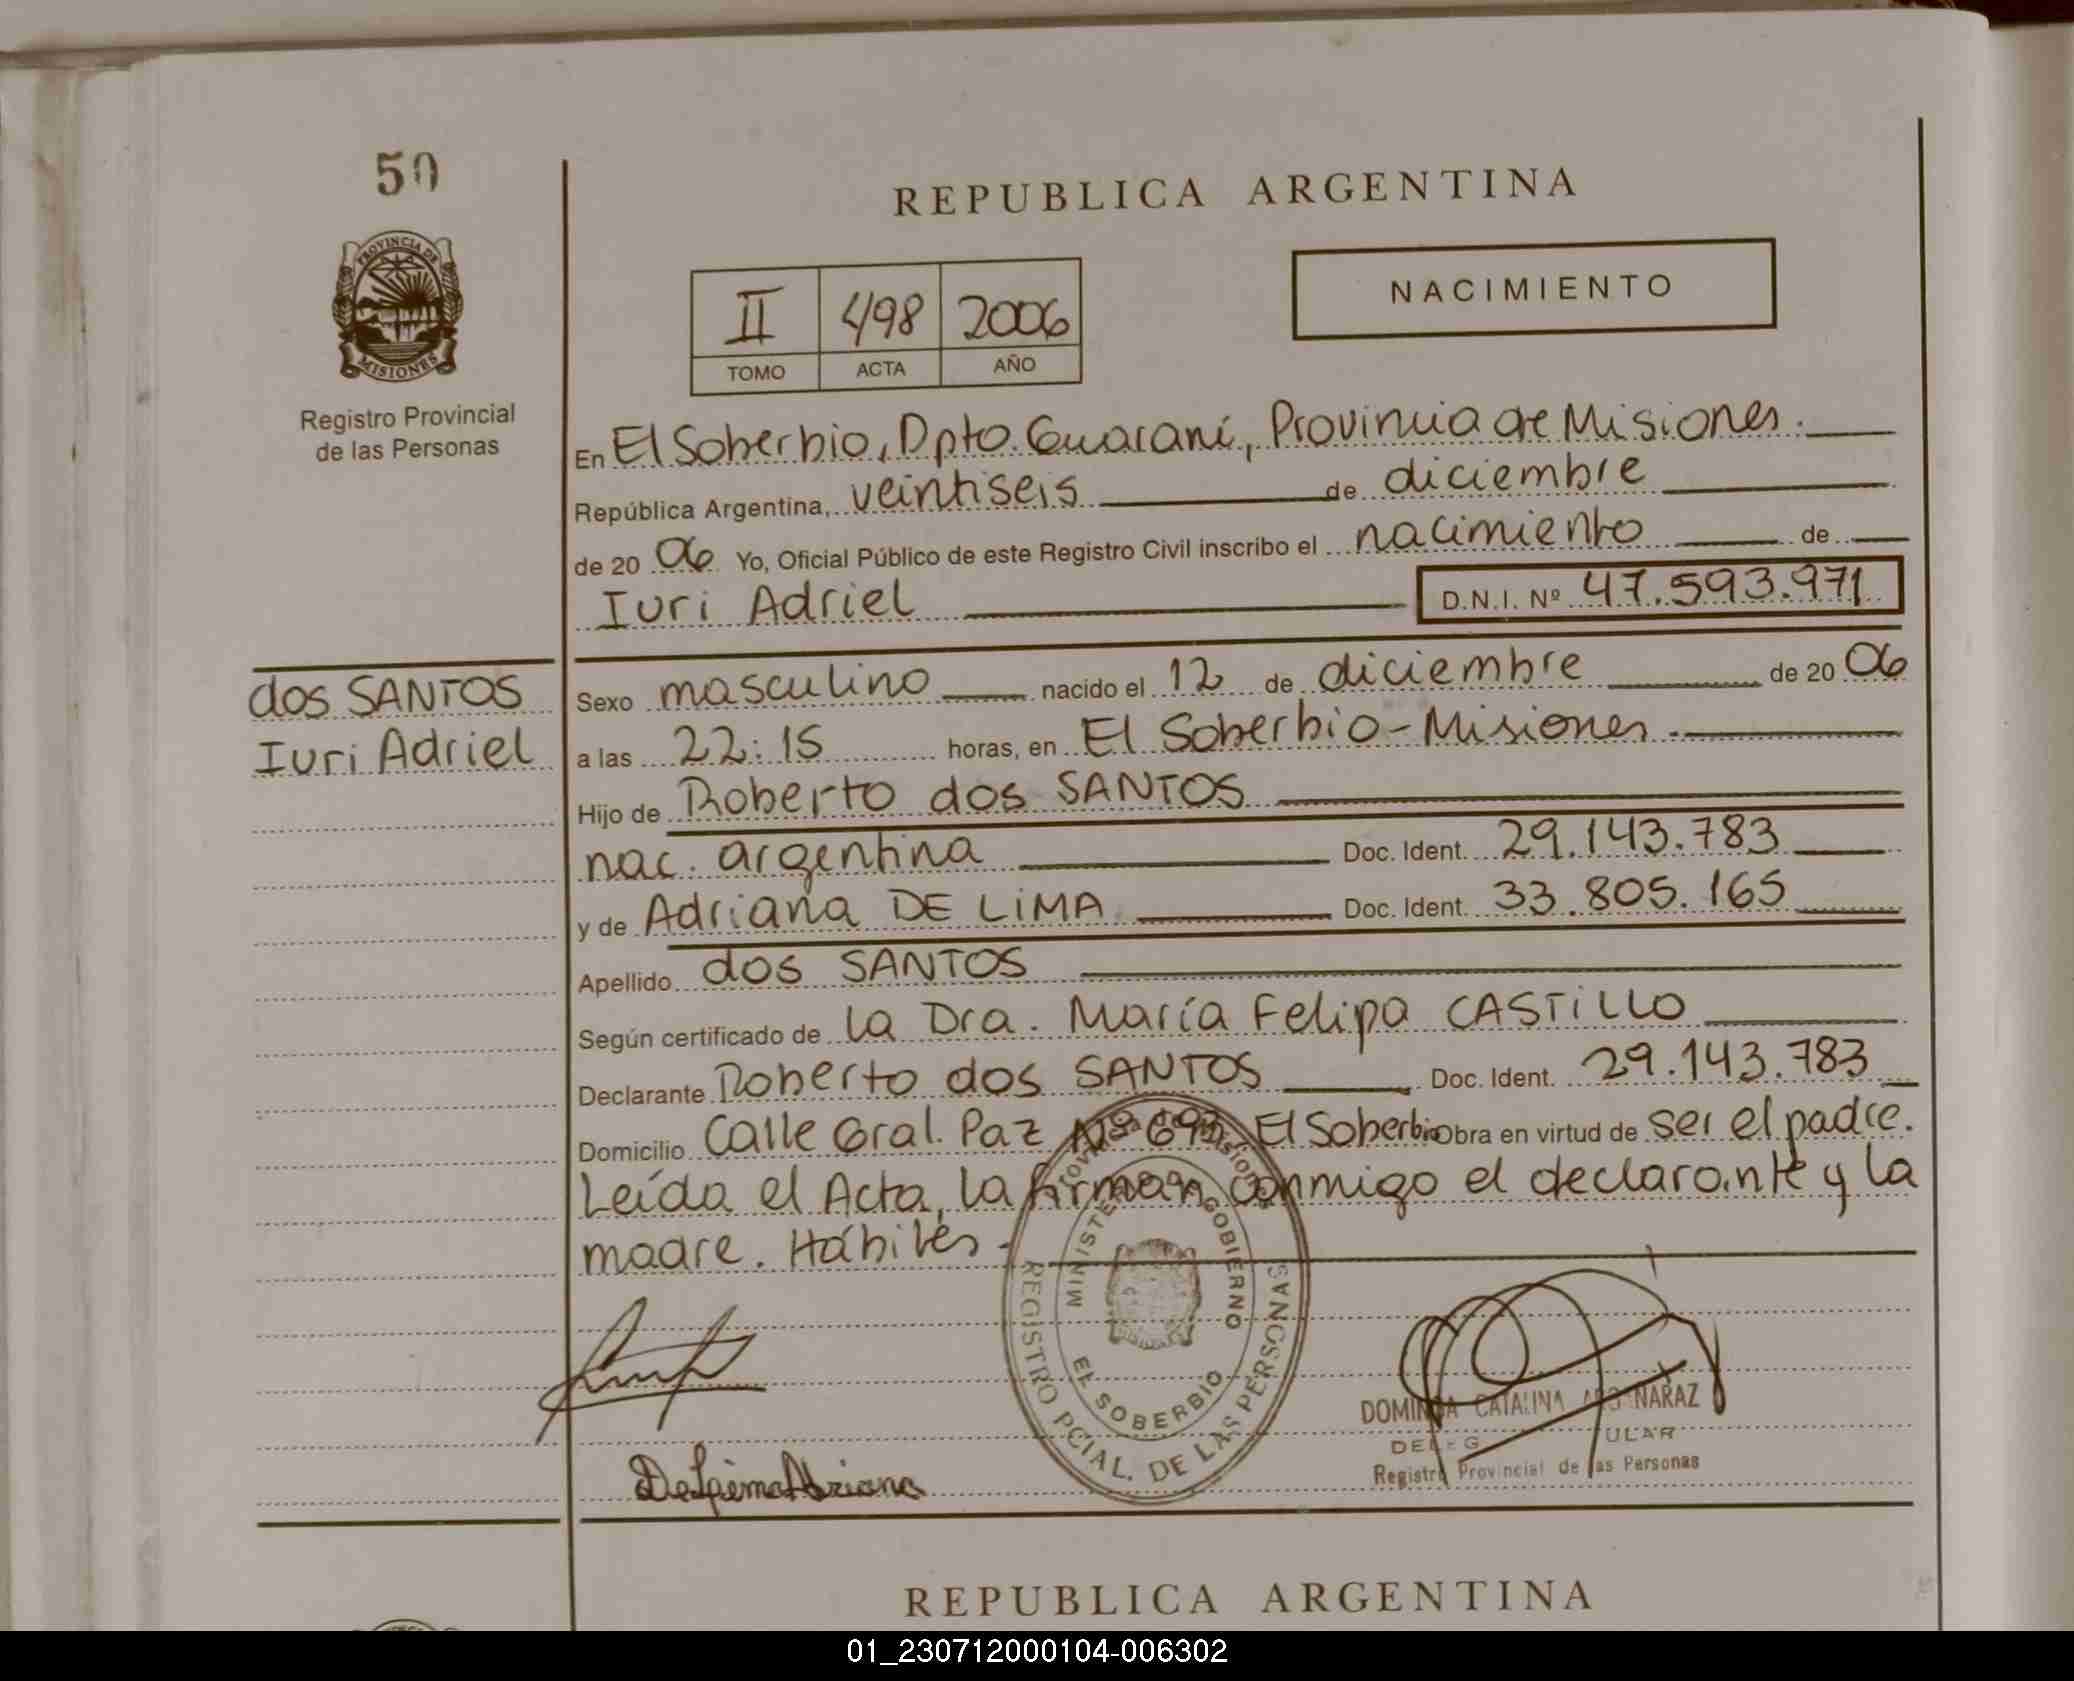 50
REPUBLICA ARGENTINA
PROVINCIA DE
MISIONES
Registro Provincial
de las Personas
NACIMIENTO
II 498 2006
TOMO ACTA AÑO
En El Soberbio, Dpto. Guaraní, Provincia de Misiones.
República Argentina, veintiseis de diciembre
de 20 06 Yo, Oficial Público de este Registro Civil inscribo el nacimiento de
Iuri Adriel D.N.I. Nº 47.593.971
dos SANTOS
Iuri Adriel
Sexo masculino nacido el 12 de diciembre de 20 06
a las 22:15 horas, en El Soberbio - Misiones.
Hijo de Roberto dos SANTOS
nac. argentina Doc. Ident. 29.143.783
y de Adriana DE LIMA Doc. Ident. 33.805.165
Apellido dos SANTOS
Según certificado de la Dra. María Felipa CASTILLO
Declarante Roberto dos SANTOS Doc. Ident. 29.143.783
Domicilio Calle Gral. Paz Nº El Soberbio Obra en virtud de ser el padre.
Leída el Acta, la firman conmigo el declarante y la
madre. Hábiles.
Provincia de Misiones
MINISTERIO GOBIERNO
EL SOBERBIO
REGISTRO PCIAL. DE LAS PERSONAS
De Lima Adriana
CATALINA
Registro Provincial de las Personas
REPUBLICA ARGENTINA
01_230712000104-006302